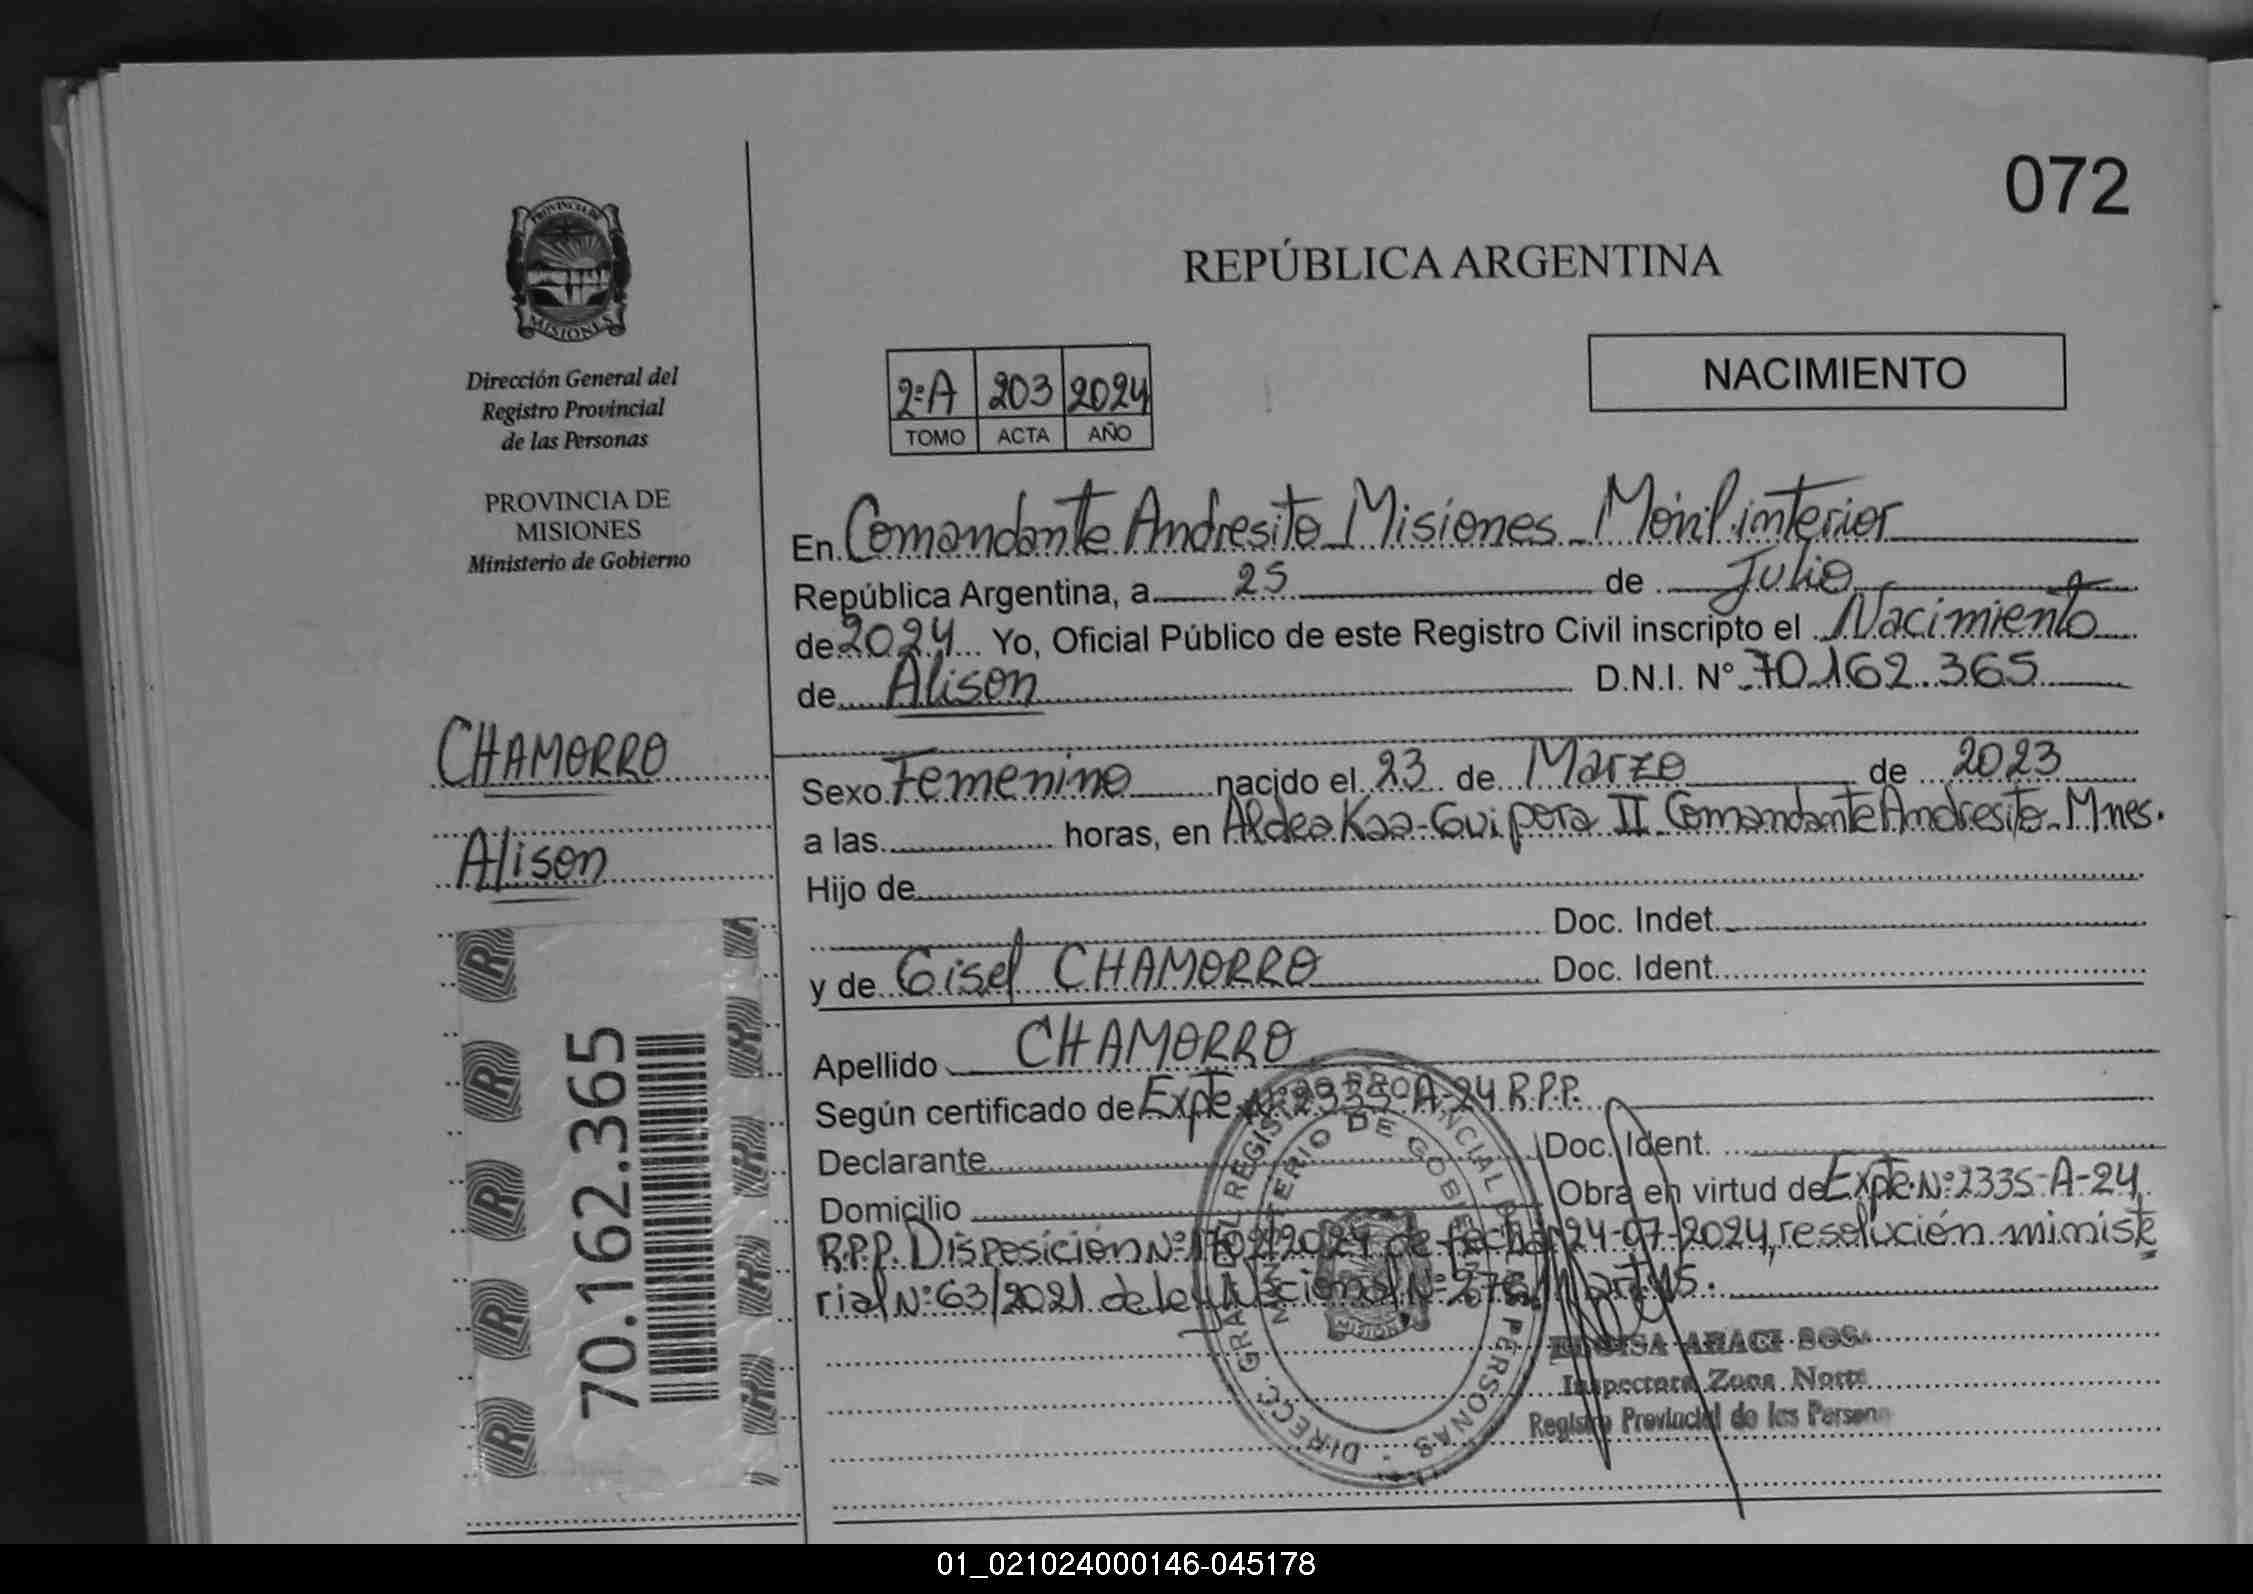 072
PROVINCIA DE
MISIONES
Dirección General del
Registro Provincial
de las Personas
PROVINCIA DE
MISIONES
Ministerio de Gobierno
CHAMORRO
Alison
70.162.365
REPÚBLICA ARGENTINA
NACIMIENTO
2ºA 203 2024
TOMO ACTA AÑO
En Comandante Andresito Misiones Móvil interior
República Argentina, a 25 de Julio
de 2024 Yo, Oficial Público de este Registro Civil inscripto el Nacimiento
de Alison D.N.I. Nº 70.162.365
Sexo Femenino nacido el 23 de Marzo de 2023
a las horas, en Aldea Kaa-Guipora II Comandante Andresito Mnes.
Hijo de
Doc. Indet.
y de Gisel CHAMORRO Doc. Ident.
Apellido CHAMORRO
Según certificado de Expte Nº 2335 A-24 R.P.P.
Declarante Doc. Ident.
Domicilio Obra en virtud de Expte Nº 2335-A-24
R.P.P. Disposición Nº 1702/2024 de fecha 24-07-2024, resolución ministe
rial Nº 63/2021 de ley Nacional Nº
DIRECC. GRAL. DEL REGISTRO PROVINCIAL DE LAS PERSONAS
MINISTERIO DE GOBIERNO
MISIONES
ELOISA ARACI SOSA
Inspectora Zona Norte
Registro Provincial de las Persona
01_021024000146-045178